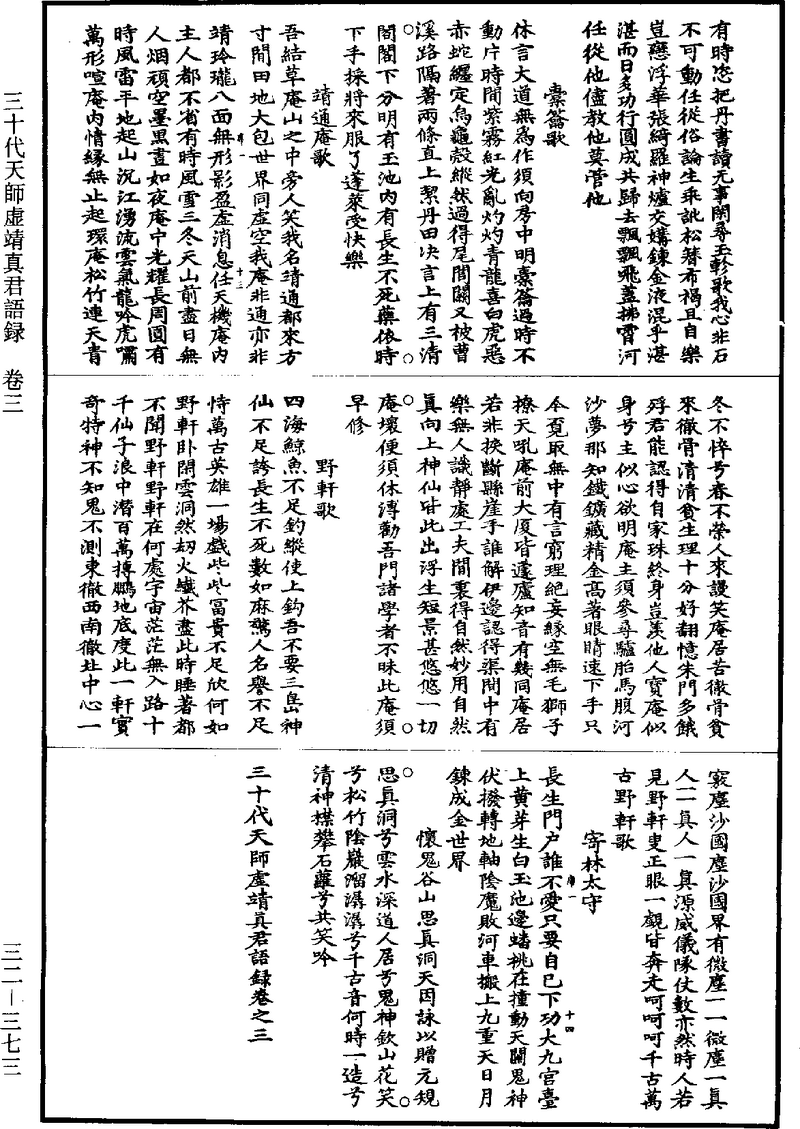 三十代天師虛靖真君語錄　卷三
三二—三七三
有時恣把丹書讀无事閑尋玉軫歌我心非石
不可動任從俗論生乖訛松棼布褐且自樂
豈戀浮華張綺羅神爐交媾鍊金液混乎湛
湛而日多功行圓成共歸去飄飄飛蓋拂霄河
任從他儘教他莫管他
橐籥歌
休言大道無為作須向房中明橐籥過時不
動片時間紫霧紅光亂灼灼青龍喜白虎惡
赤蛇纏定烏龜殼縱然過得尾閭關又被曹
溪路隔著兩條直上絜丹田决言上有三清
閣閣下分明有玉池内有長生不死藥依時
下手採將來服了蓬萊受快樂
靖通庵歌
吾結草庵山之中旁人笑我名靖通都來方
寸間田地大包世界同虛空我庵非通亦非
靖玲瓏八面無形影盈虛消息任天機庵内
主人都不省有時風雪三冬天山前盡日無
人烟頑空墨黑晝如夜庵中光耀長周圓有
時風雷平地起山沉江湧流雲氣龍吟虎嘯
萬形喧庵内情緣無止起環庵松竹連天青
冬不悴兮春不榮人來謾笑庵居苦徹骨貧
來徹骨清清貧生理十分好翻憶朱門多餓
殍君能認得自家珠終身豈羨他人寶庵似
身兮主似心欲明庵主須參尋驢胎馬腹河
沙夢那知鐵鑛藏精金高著眼睛速下手只
今覔取無中有言窮理絶妄緣空無毛獅子
撩天吼庵前大厦皆蘧廬知音有幾同庵居
若非挨斷縣崖手誰解伊邊認得渠閙中有
樂無人識靜處工夫間裏得自然妙用自然
真向上神仙皆此出浮生短景甚悠悠一切
庵壞便須休溥勸吾門諸學者不昧此庵須
早修
野軒歌
四海鯨魚不足釣縱使上鈎吾不要三島神
仙不足誇長生不死數如麻驚人名譽不足
恃萬古英雄一場戲些些冨貴不足欣何如
野軒卧閑雲洞然刼火纖芥盡此時睡著都
不聞野軒野軒在何處宇宙茫茫無入路十
千仙子浪中潛百萬搏鵬地底度此一軒實
奇特神不知鬼不測東徹西南徹北中心一
竅塵沙國塵沙國界有微塵一一微塵一真
人一一真人一真源威儀隊仗數亦然時人若
見野軒叟正眼一覷皆奔走呵呵呵呵千古萬
古野軒歌
寄林太守
長生門户誰不愛只要自已下功大九宮臺
上黄芽生白玉池邊蟠桃在撞動天關鬼神
伏撥轉地軸陰魔敗河車搬上九重天日月
鍊成金世界
懷鬼谷山思真洞天因詠以贈元規
思真洞兮雲水深道人居兮鬼神欽山花笑
兮松竹陰巖溜潺潺兮千古音何時一造兮
清神襟攀石蘿兮共笑吟
三十代天師虛靖真君語錄卷之三